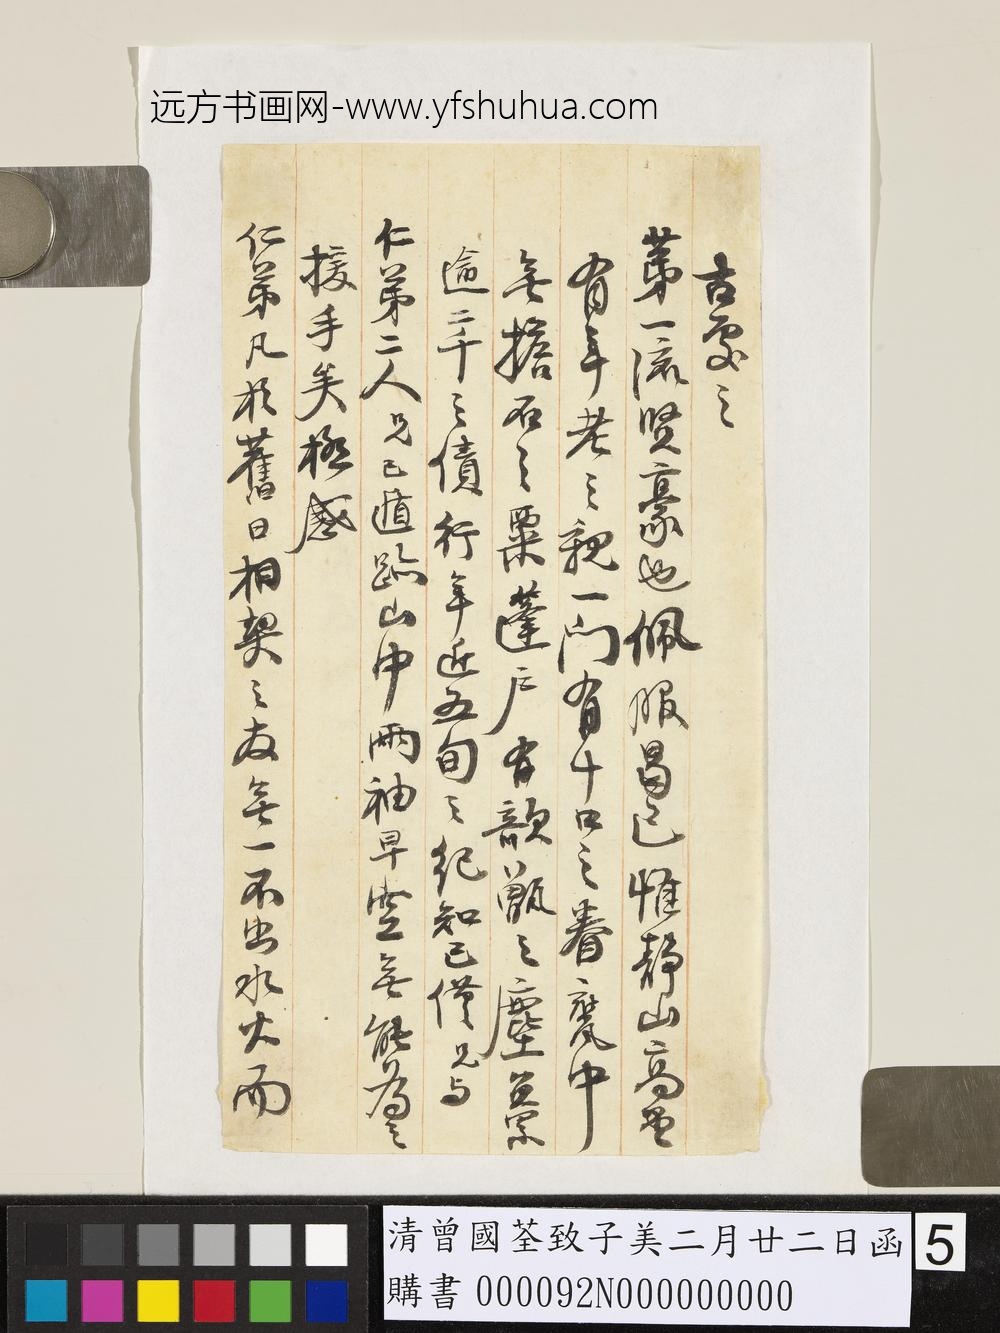 远方书画网-www.yfshuhua.com
古豪之
第一流賢豪也佩服曷已惟靜山高堂
有年老之親一門有十口之眷甕中
無擔石之粟蓬戶有歌甑之塵並累
逾二千之債行年近五旬之紀知已僅兄与
仁弟二人兄已遁跡山中兩袖早空無能為之
援手矣極感
仁弟凡於舊日相契之友無一不出水火而
清曾國荃致子美二月廿二日函
購書 000092N000000000
5